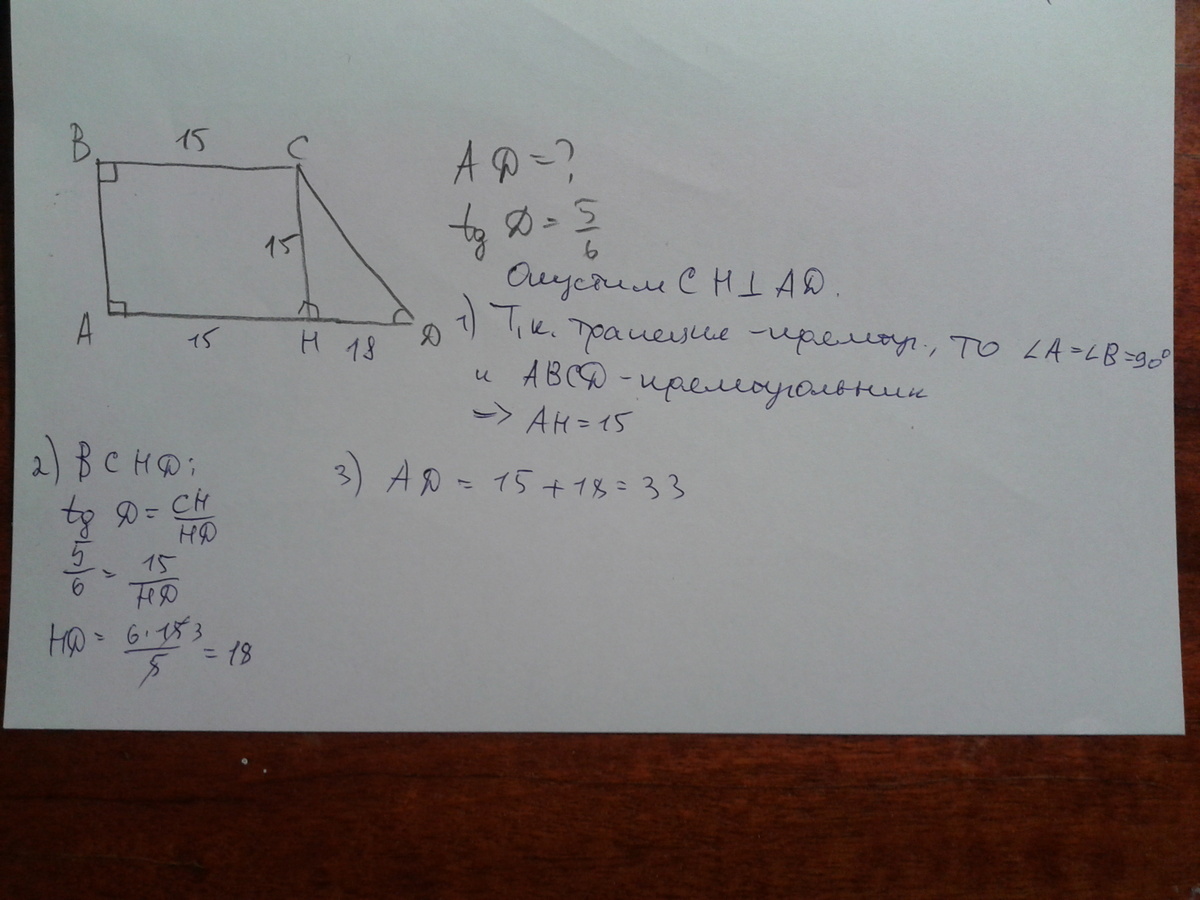 B 15 C
15
A 15 H 18 D
AD = ?
tg D = 5/6
Опустим CH ⊥ AD.
1) Т.к. трапеция - прямоуг., то ∠A = ∠B = 90°
и ABCD - прямоугольник
=> AH = 15
2) В CHD:
tg D = CH/HD
5/6 = 15/HD
HD = 6·15 3/5 = 18
3) AD = 15 + 18 = 33